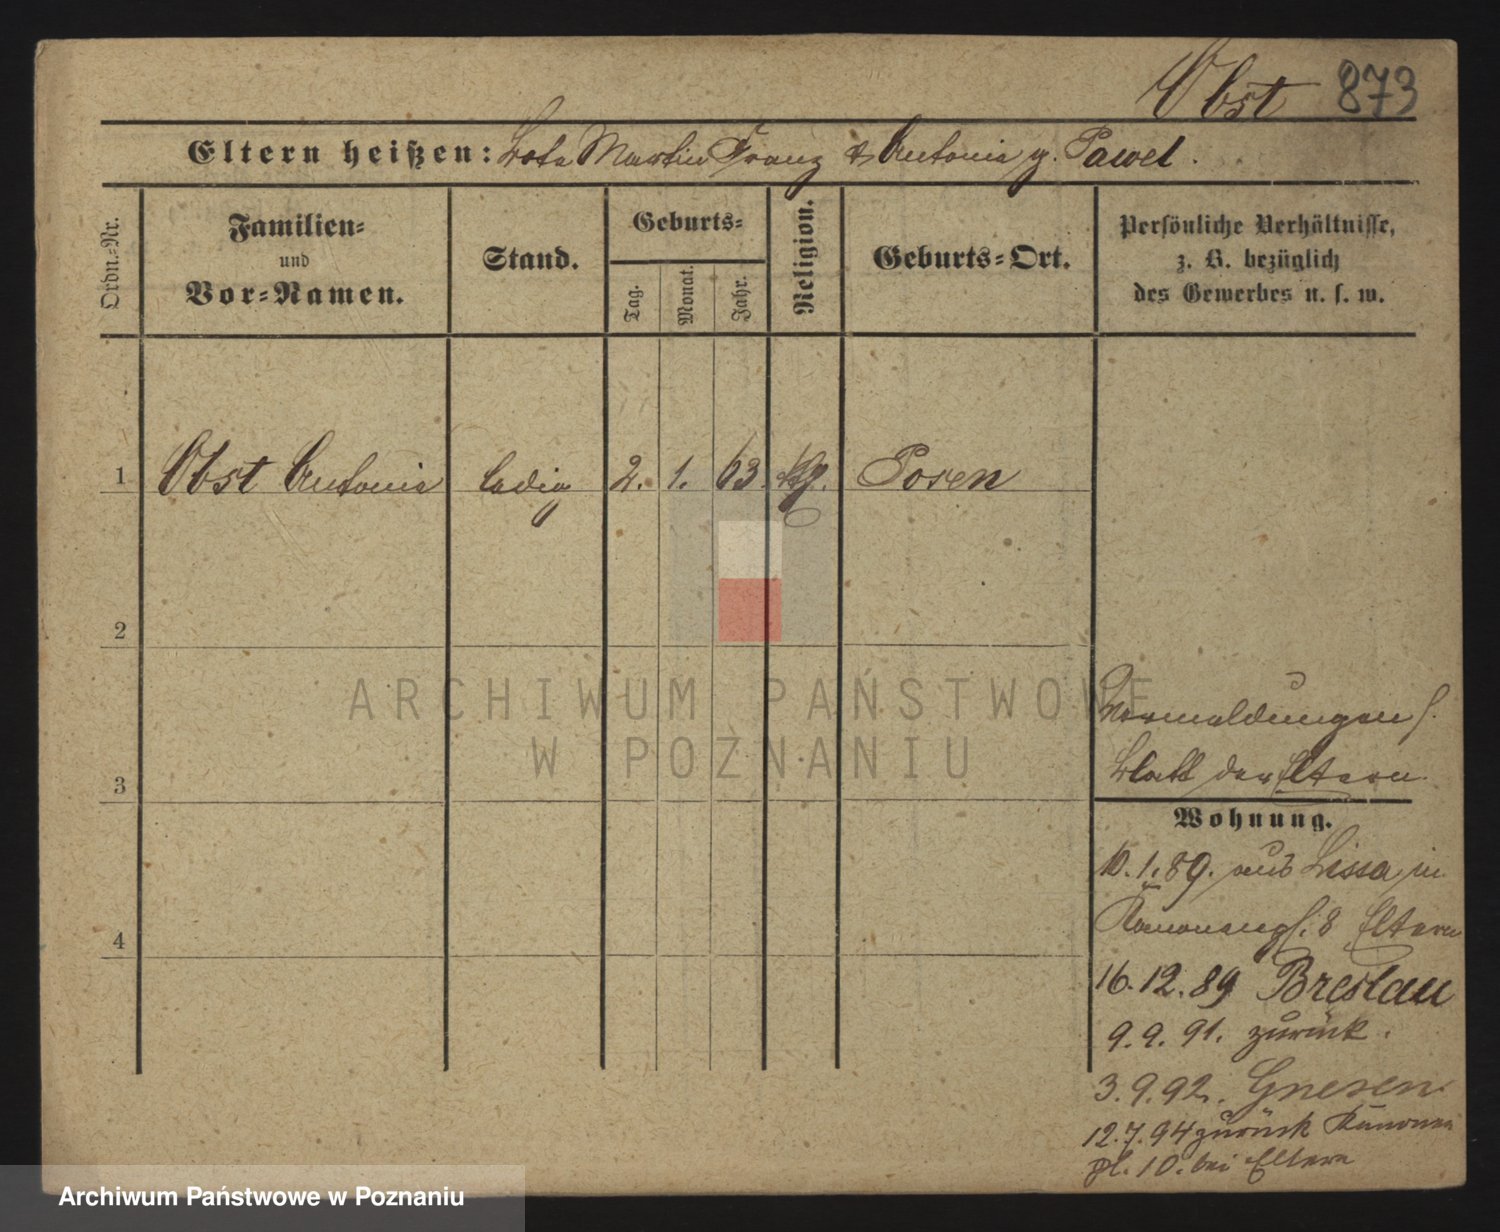 Obst 873
Eltern heißen: Martin Franz & Antonie g. Pawel.
Ordn.-Nr.
Familien-
und
Vor-Namen.
Stand.
Geburts-
Tag.
Monat.
Jahr.
Religion.
Geburts-Ort.
Persönliche Verhältnisse,
z. B. bezüglich
des Gewerbes u. s. w.
1 Obst Antonie ledig 2. 1. 63. Posen
2
3
4
Vermeldungen s.
Blatt der Eltern.
Wohnung.
10.1.89. aus Lissa in
8 Eltern
16.12.89 Breslau
9.9.91. zurück.
3.9.92. Gnesen.
12.7.94 zurück Kanonen
pl. 10. bei Eltern
ARCHIWUM PAŃSTWOWE
W POZNANIU
Archiwum Państwowe w Poznaniu